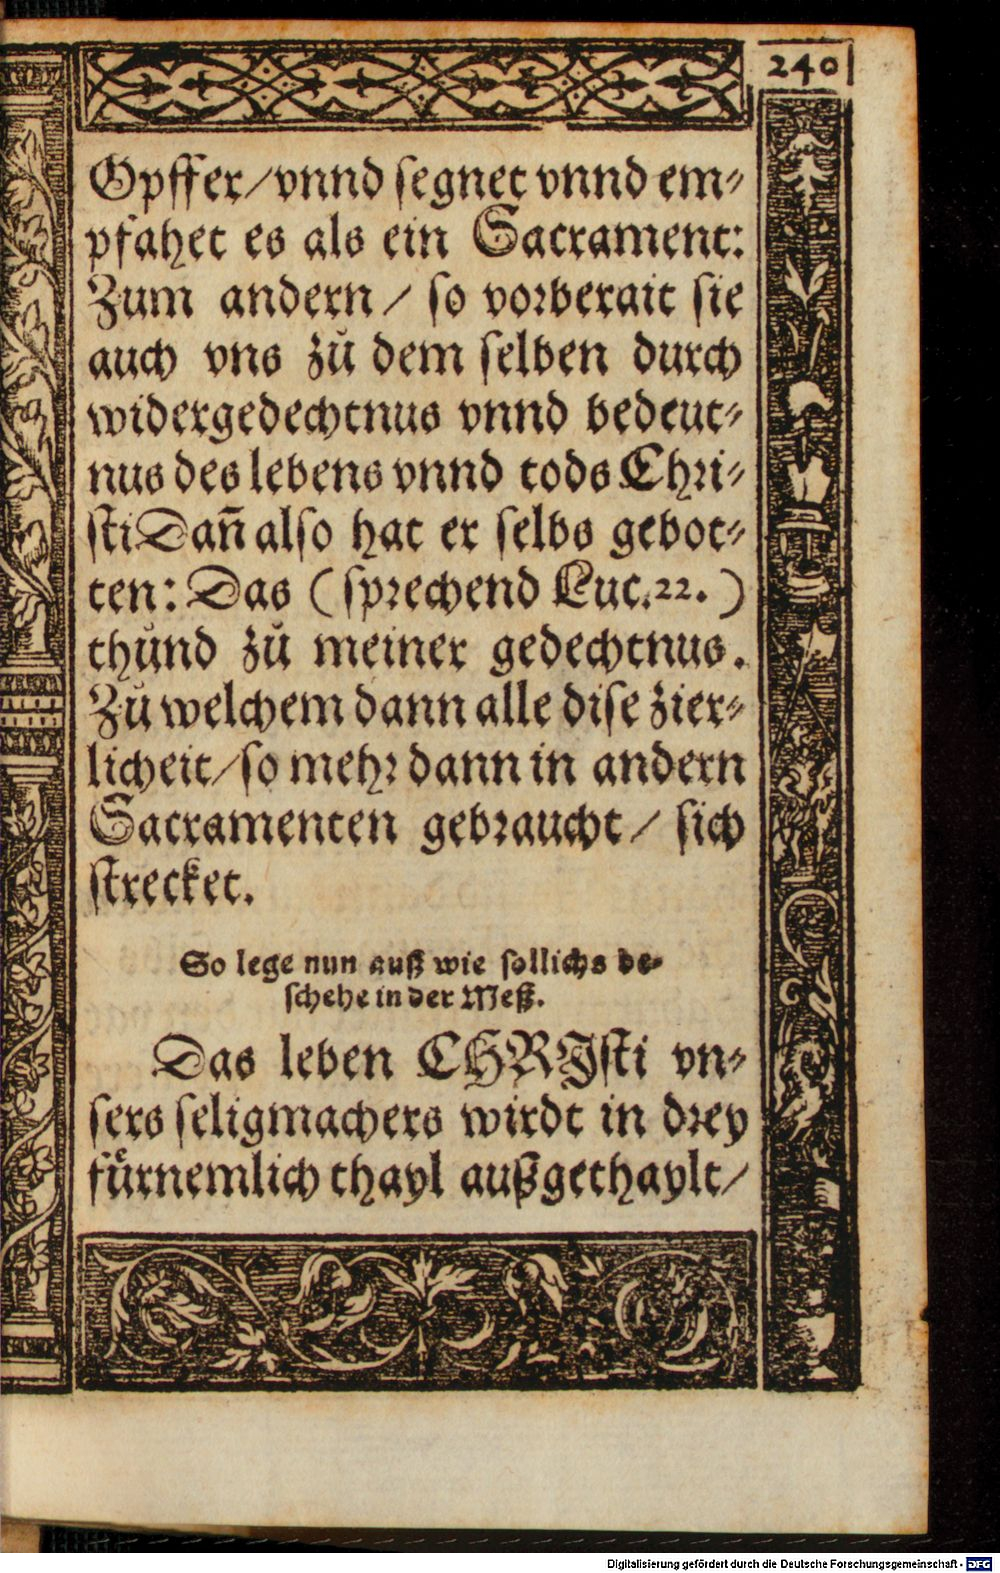 240
Opffer/vnnd ſegnet vnnd em⸗
pfahet es als ein Sacrament:
Zum andern/ ſo vorberait ſie
auch vns zů dem ſelben durch
widergedechtnus vnnd bedeut⸗
nus des lebens vnnd tods Chri⸗
ſti Dañ alſo hat er ſelbs gebot⸗
ten: Das (ſprechend Luc.22.)
thůnd zů meiner gedechtnus.
Zů welchem dann alle diſe zier⸗
licheit/ſo mehr dann in andern
Sacramenten gebraucht/ ſich
ſtrecket.
So lege nun auß wie ſollichs be⸗
ſchehe in der Meß.
Das leben CHRIſti vn⸗
ſers ſeligmachers wirdt in drey
fürnemlich thayl außgethaylt/
Digitalisierung gefördert durch die Deutsche Forschungsgemeinschaft - DFG